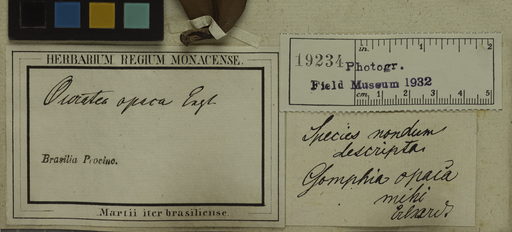 HERBARIUM REGIUM MONACENSE.
Ouratea opaca Engl.
Brasilia Provinc.
Martii iter brasiliense.
19234
Photogr.
Field Museum 1932
in. 1 2
cm. 1 2 3 4 5
Species nondum
descripta
Gomphia opaca
mihi